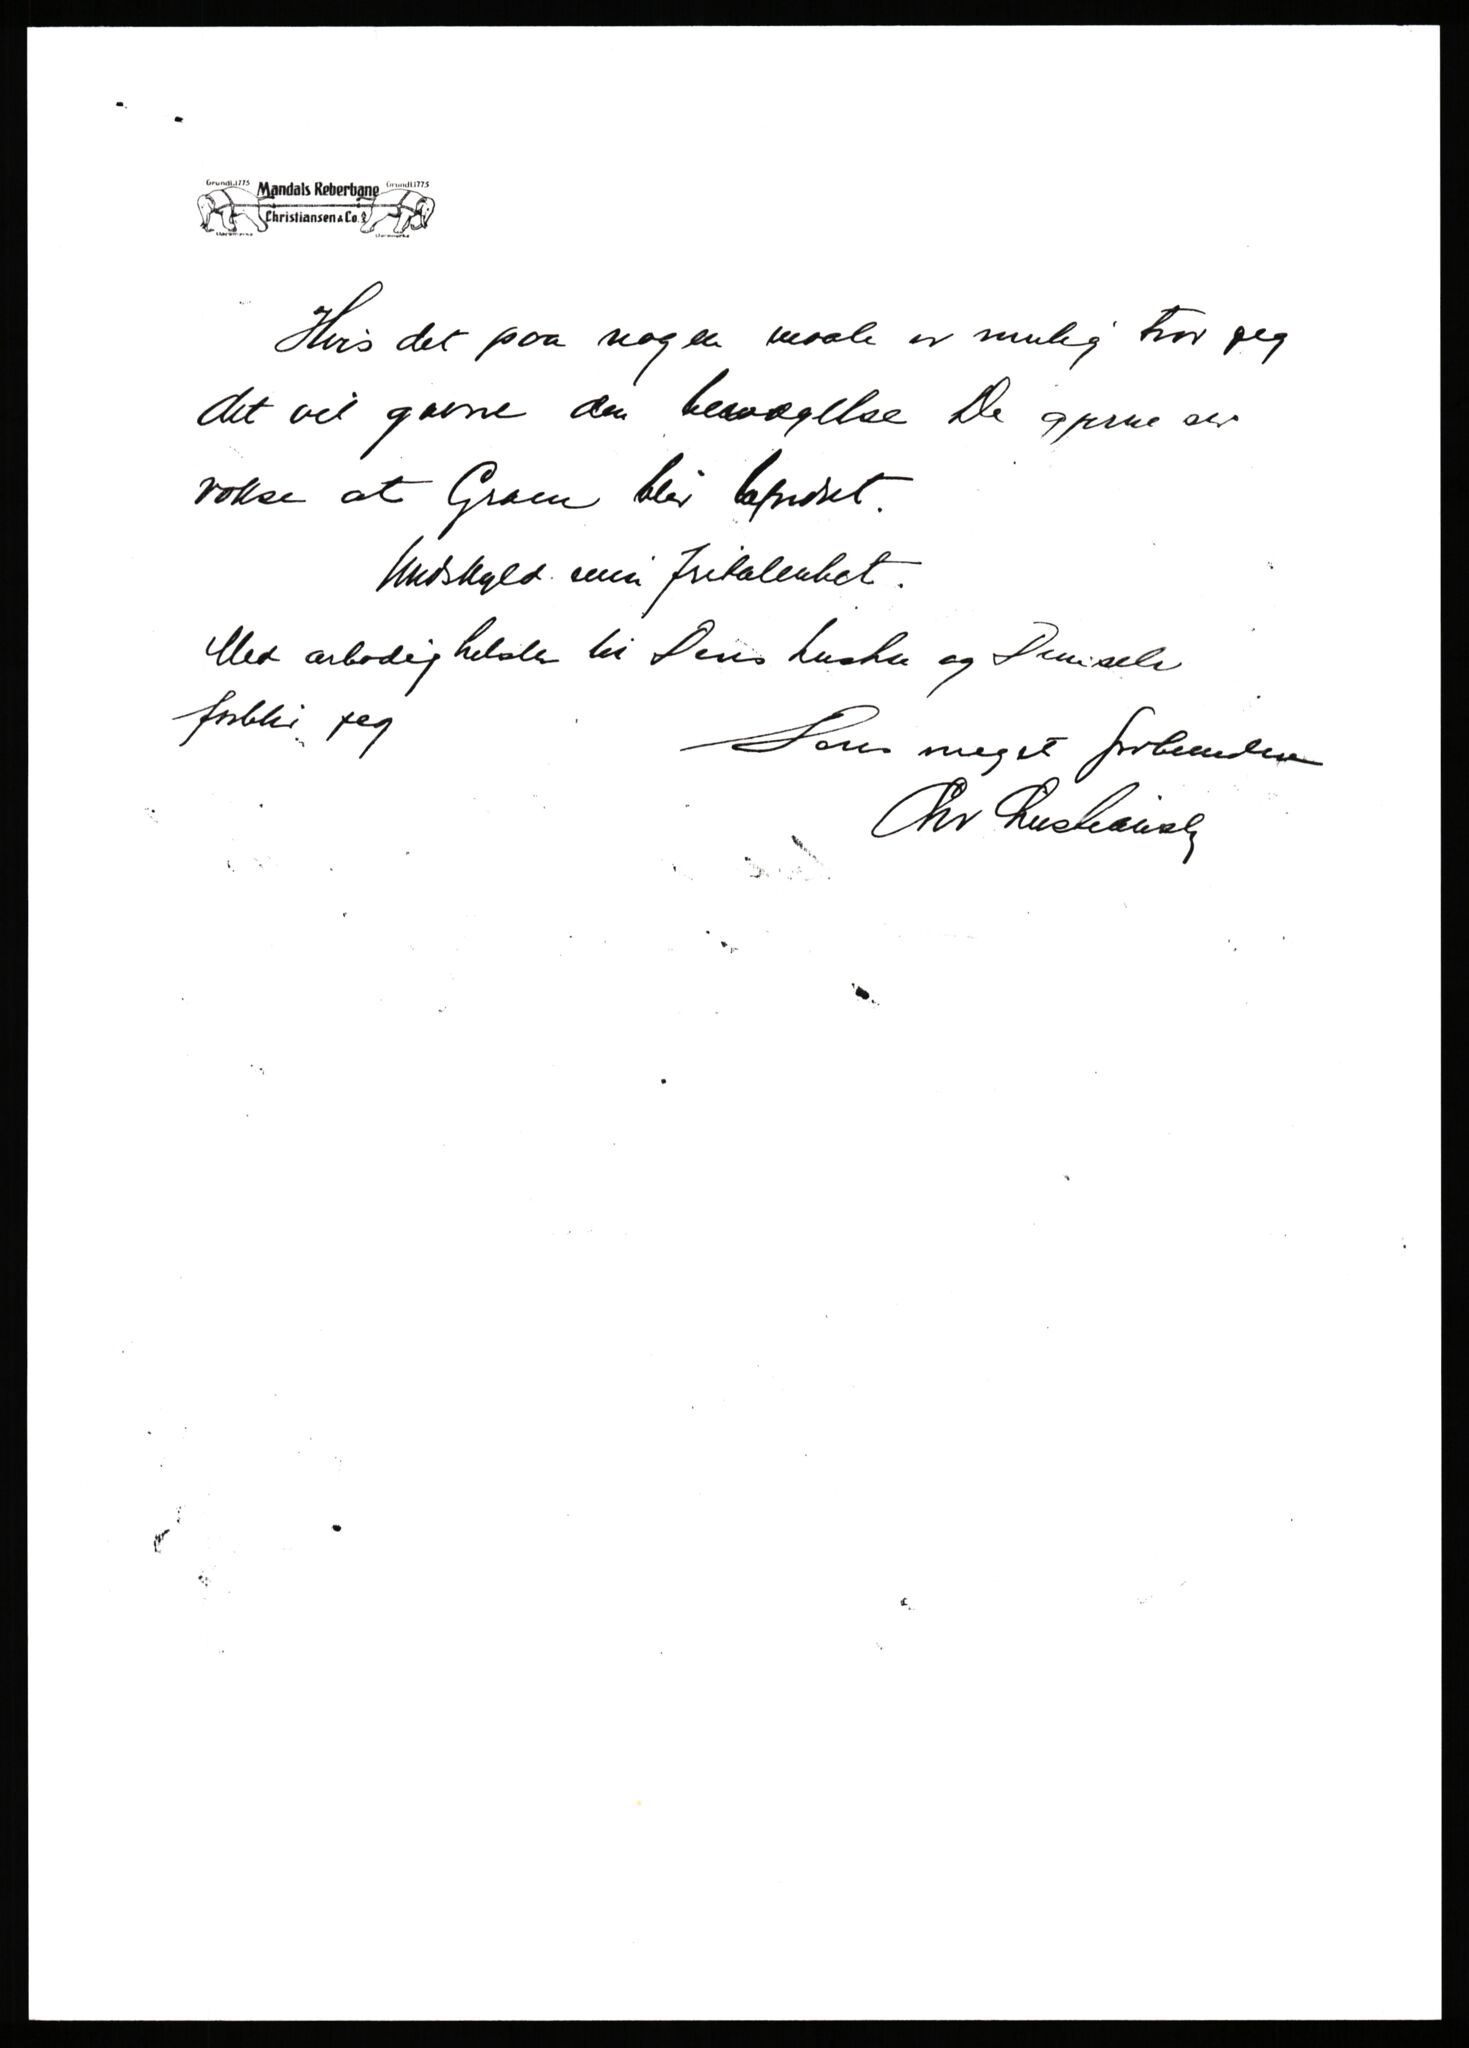 Grundl. 1775 Mandals Reberbane Grundl. 1775
Christiansen & Co. A/S
Hvis det paa nogen maate er mulig tror jeg
det vil gavne den bevægelse De gjerne ser
vokse at Gram blir løsnet.
Undskyld min fritalenhet.
Med ærbødig hilsen til Deres hustru og Dem selv
forblir jeg
Deres meget forbundne
Chr Christiansen